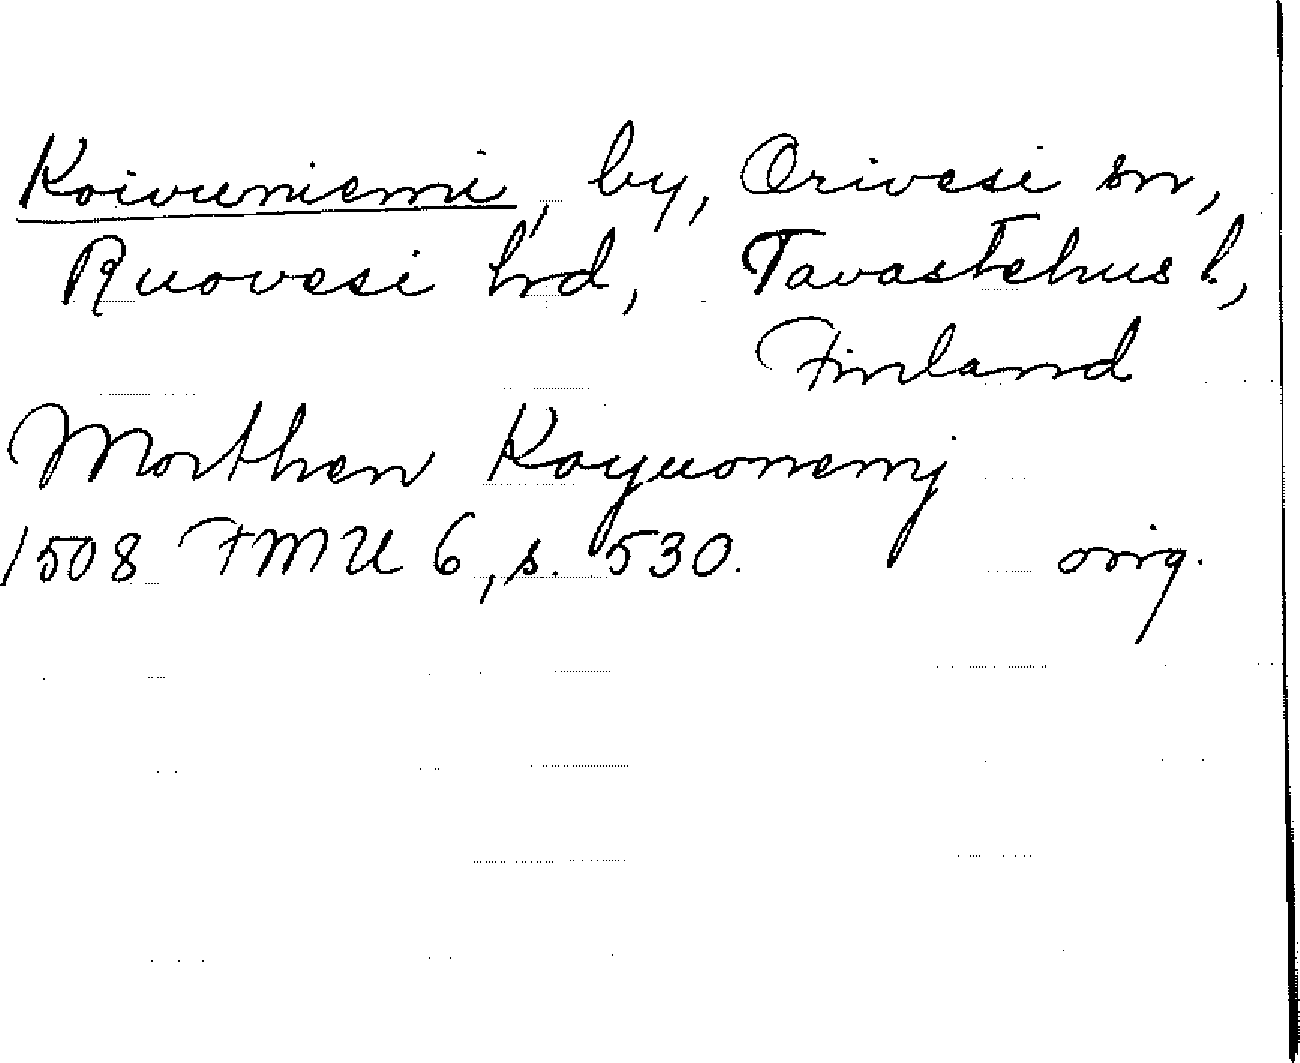 Koivuniemi, by, Orivesi sn,
Ruovesi hd, Tavastehus l,
Finland
Morthen Koyuonemj
1508 FMU 6, s. 530. orig.